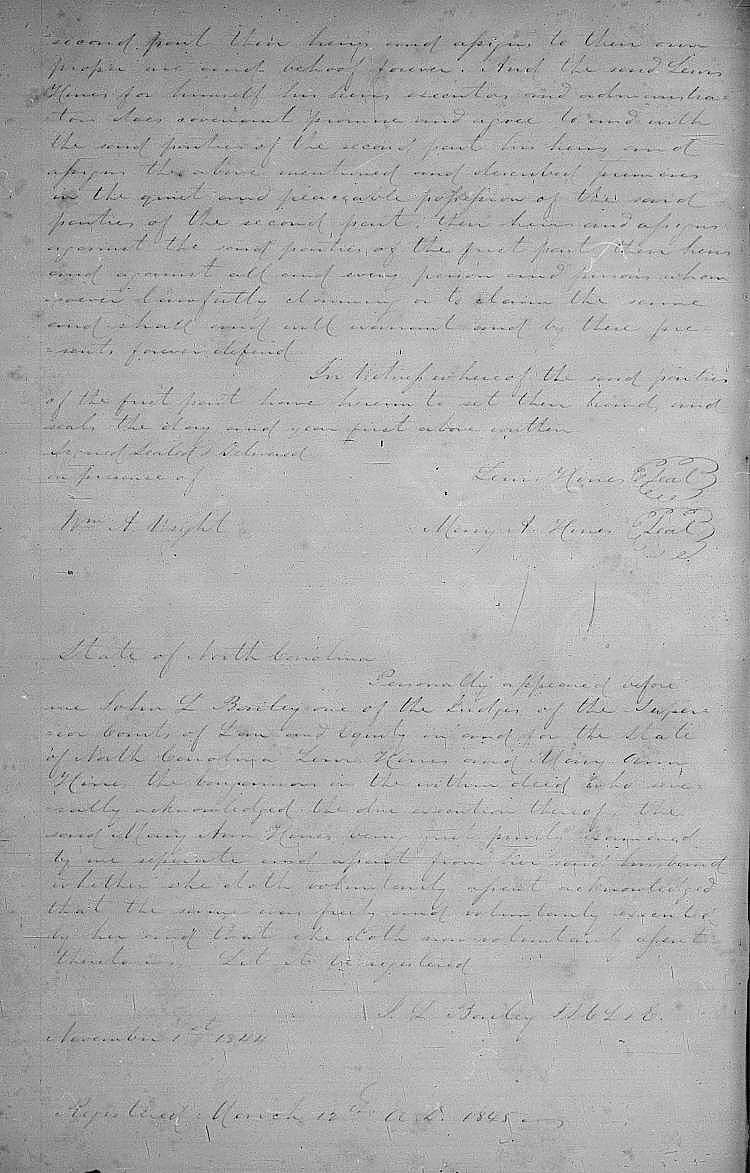 second part their heirs and assigns to their own
proper use and behoof forever. And the said Lewis
Hines for himself his heirs executors and administra=
tors does covenant promise and agree to and with
the said parties of the second part his heirs and
assigns the above mentioned and described premises
in the quiet and peaceable possession of the said
parties of the second part, their heirs and assigns
against the said parties of the first part their heirs
and against all and every person and persons whom
soever lawfully claiming or to claim the same
and shall and will warrant and by these pre=
=sents forever defend
In witness whereof the said parties
of the first part have hereun to set their hands and
seals the day and year first above written
Signed Sealed & Delivered
in presence of
Lewis Hines Seal
Wm A Wright
Mary A. Hines Seal
State of North Carolina
Personally appeared before
me John L Bailey one of the Judges of the Super=
=ior Courts of Law and Equity in and for the State
of North Carolina Lewis Hines and Mary Ann
Hines the bargainors in the within deed who seve=
=rally acknowledged the due execution thereof, the
said Mary Ann Hines being first privily examined
by me seperate and apart from her said husband
whether she doth voluntarily assent acknowledged
that the same was freely and voluntarily executed
by her and that she doth now voluntarily assent
thereto Let it be registered
J. L. Bailey
November 1st 1844
Registered March 12th A.D. 1845